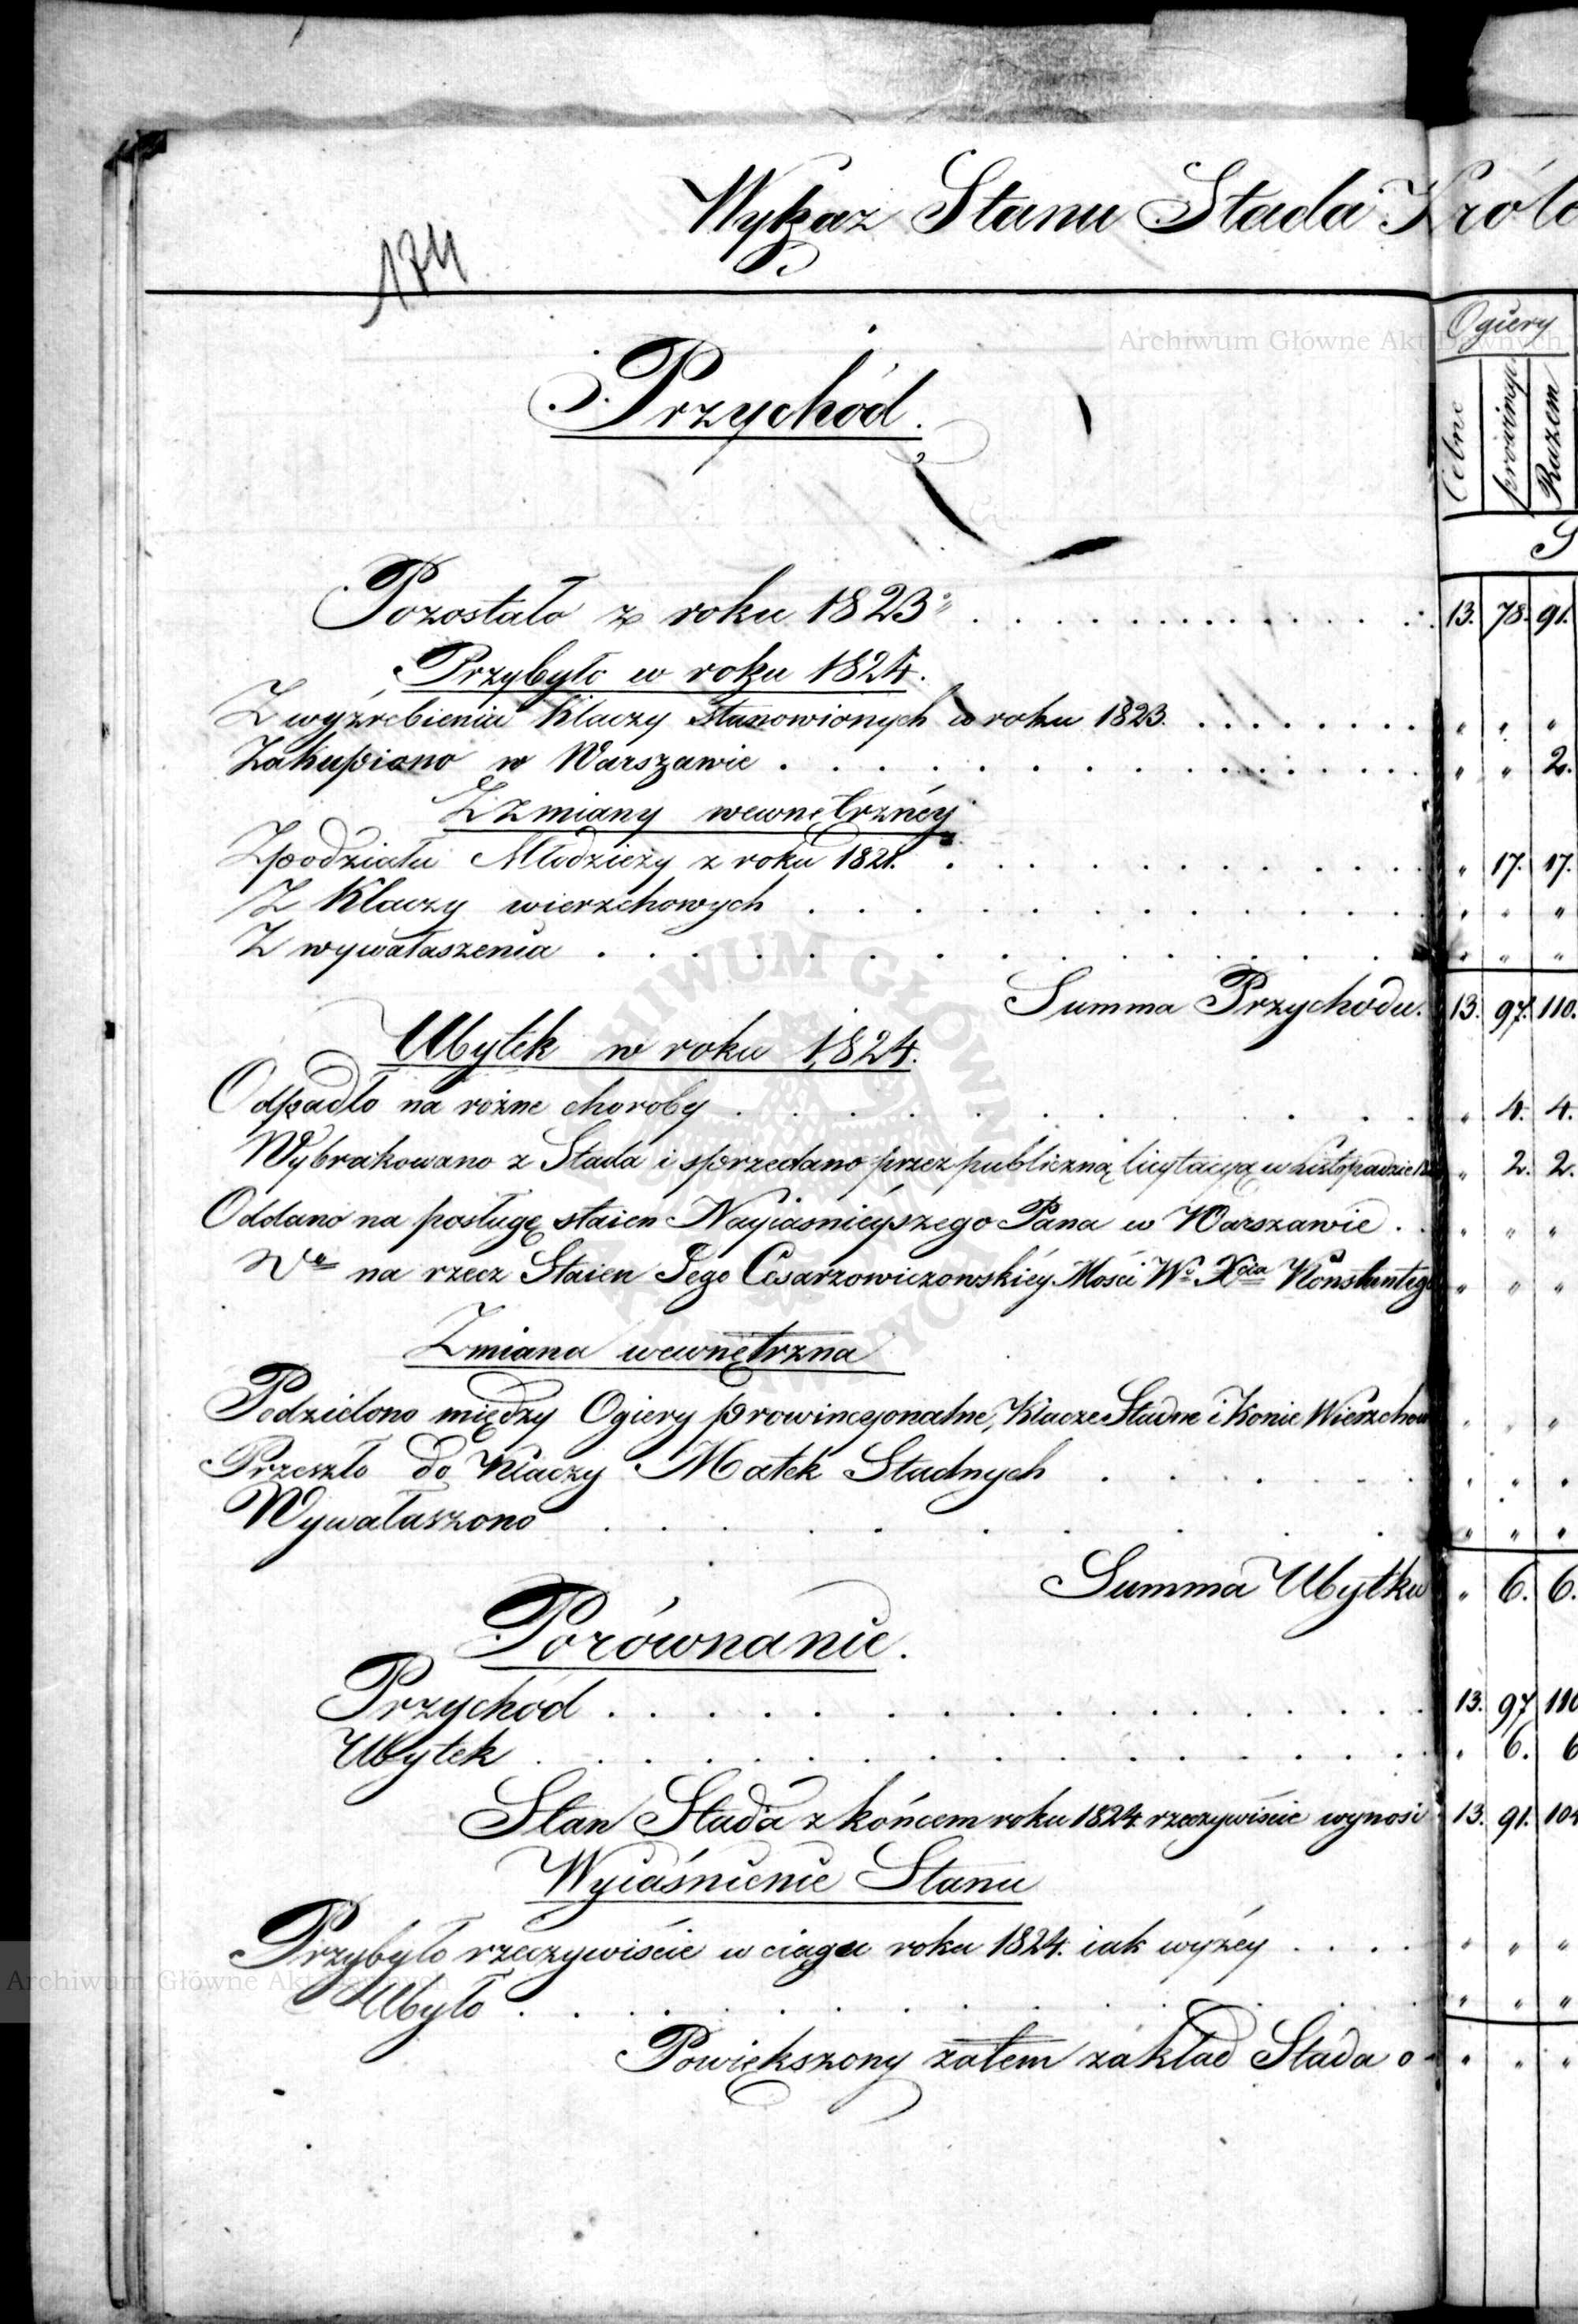 Wykaz Stanu Stada Króle
174
Ogiery
Przychód.
Celne
prowincyo
Razem
S
Pozostało z roku 1823. 13. 78. 91.
Przybyło w roku 1824.
Z wyźrebienia Klaczy Stanowionych w roku 1823. " " "
Zakupiono w Warszawie " " 2.
Z Zmiany wewnętrznéy
Z podziału Młodzieży z roku 1821. " 17. 17.
Z Klaczy wierzchowych " " "
Z wywałaszenia " " "
Summa Przychodu. 13. 97. 110.
Ubytek w roku 1824.
Odpadło na rożne choroby " 4. 4.
Wybrakowano z Stada i sprzedano przez publiczną licytacyą w Listopadzie " 2. 2.
Oddano na posługę staien Nayiasnieyszego Pana w Warszawie " " "
na rzecz Staien Jego Cesarzowiczowskiéy Mości Wo Xcia Konstantego " " "
Zmiana wewnętrzna
Podzielono między Ogiery prowincyonalne, Klacze Stadne i Konie Wierzchow " " "
Przeszło do Klaczy Matek Stadnych " " "
Wywałaszono " " "
Summa Ubytku " 6. 6.
Porównanie.
Przychód 13. 97 110
Ubytek " 6. 6
Stan Stada z końcem roku 1824 rzeczywiście wynosi 13. 91. 104
Wyiaśnienie Stanu
Przybyło rzeczywiście w ciągu roku 1824. iak wyżéy " " "
Ubyło " " "
Powiększony zatem zakład Stada o " " "
Archiwum Główne Akt Dawnych
Archiwum Główne Akt Dawnych
ARCHIWUM GŁÓWNE AKT DAWNYCH